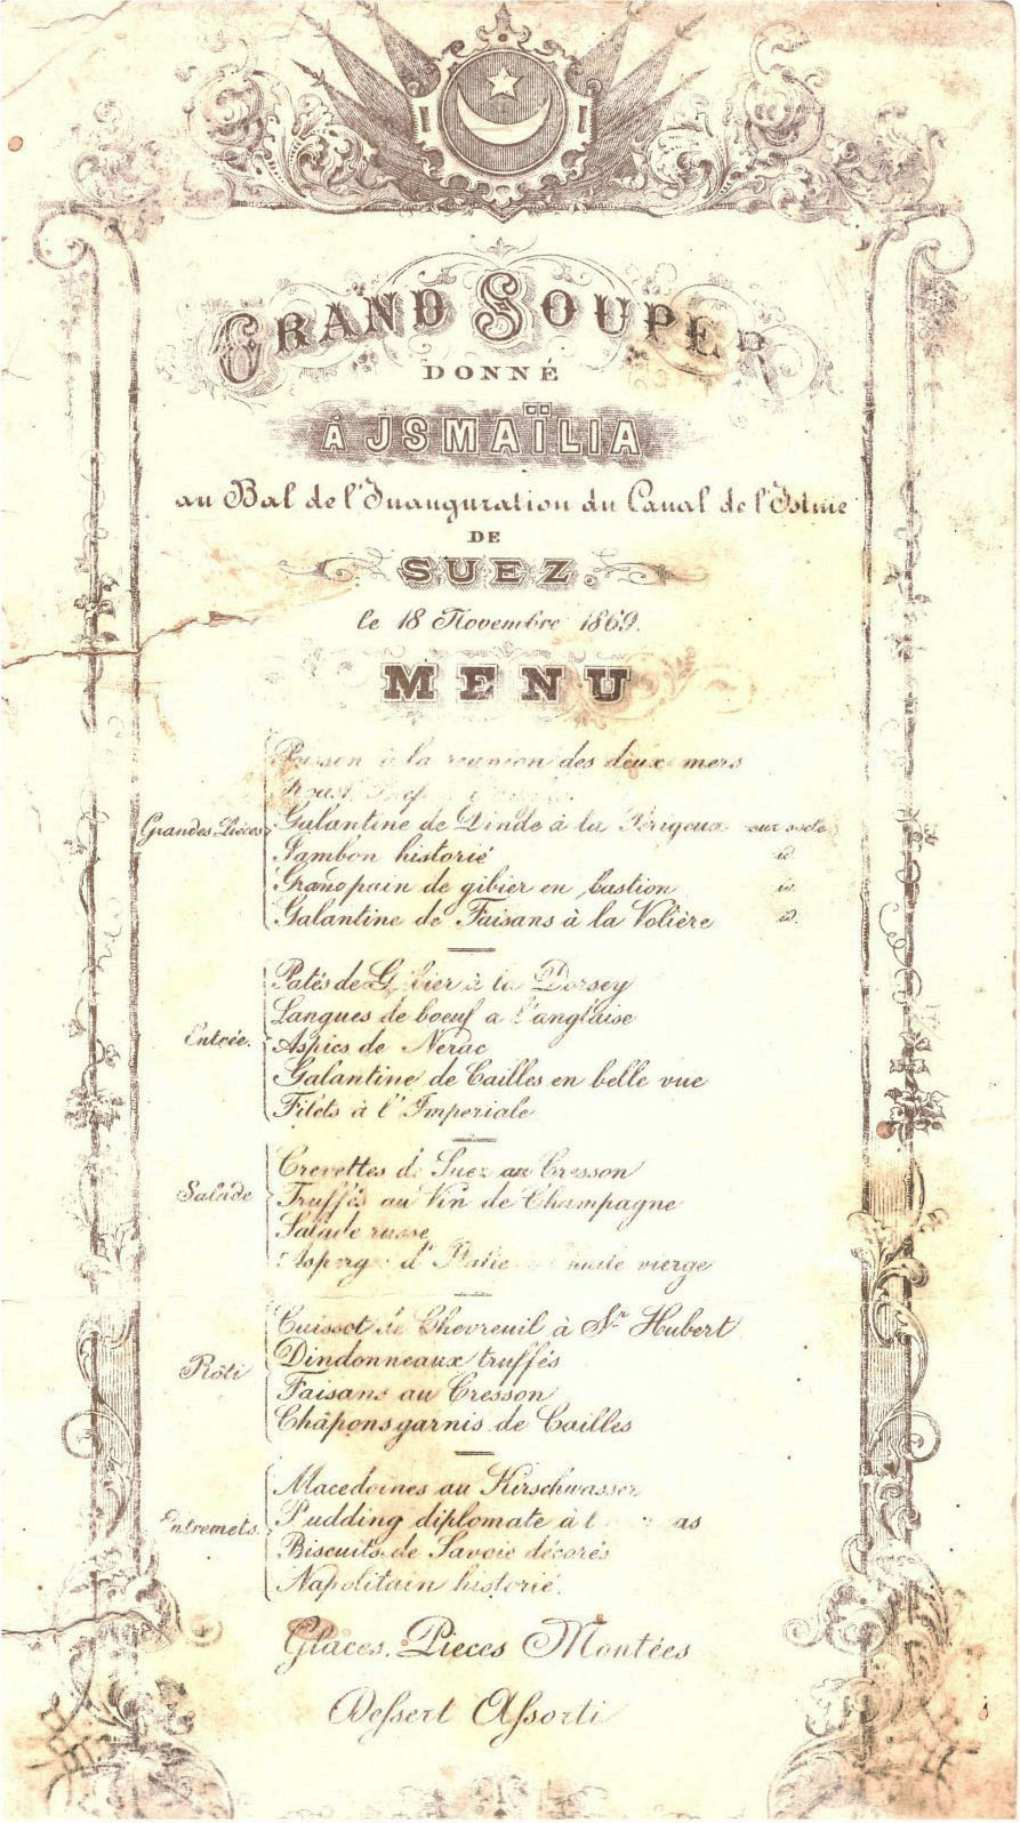 GRAND SOUPER
DONNÉ
À JSMAÏLIA
au Bal de l'Inauguration du Canal de l'Istme
DE
SUEZ.
le 18 Novembre 1869.
MENU
Grandes Pièces
à la reunion des deux mers
Galantine de Dinde à la Périgeux sur socle
Jambon historié id.
Grand pain de gibier en bastion id.
Galantine de Faisans à la Volière id.
Entrée.
Patés de Gibier à la Dorsey
Langues de boeuf a l'anglaise
Aspics de Nerac
Galantine de Cailles en belle vue
Filets à l'Imperiale
Salade
Crevettes de Suez au Cresson
Truffes au Vin de Champagne
Salade russe
d'Italie huile vierge
Rôti
Cuissot de Chevreuil à St Hubert
Dindonneaux truffés
Faisans au Cresson
Châpons garnis de Cailles
Entremets.
Macedoines au Kirschwasser
Pudding diplomate à
Biscuits de Savoie décorés
Napolitain historié.
Glaces. Pieces Montées
Dessert Assorti